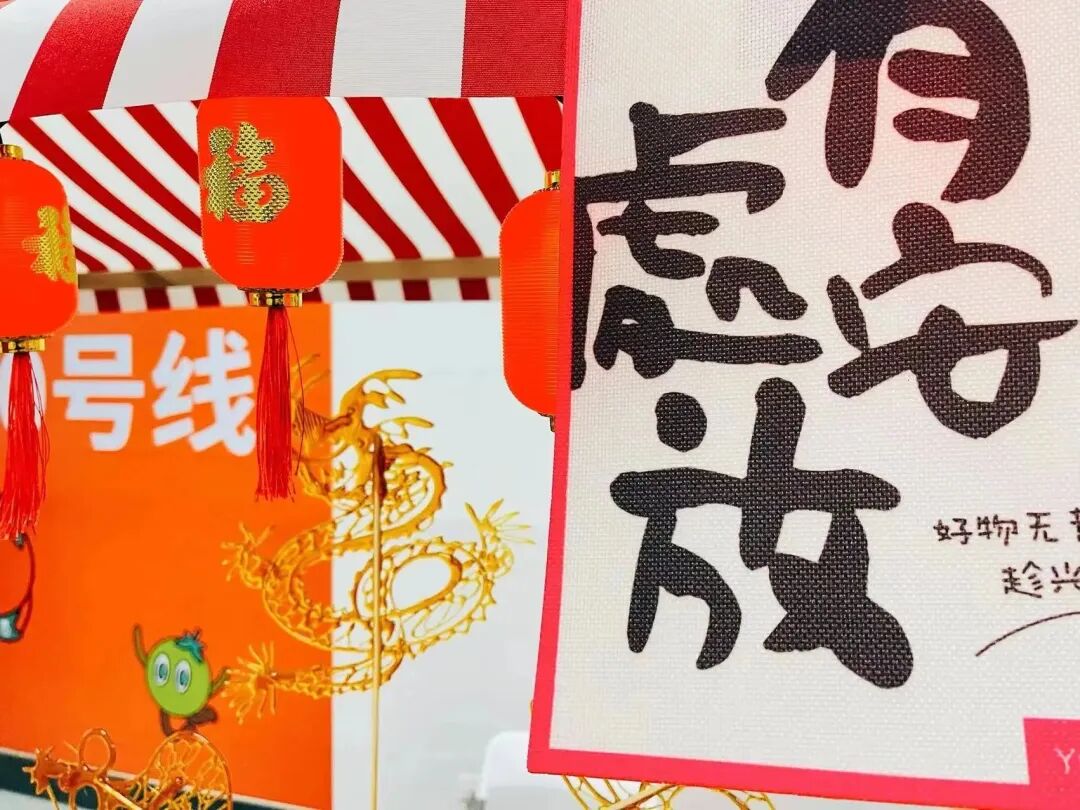 福
福
号线
有
處
安
放
好物无
趁兴
Y